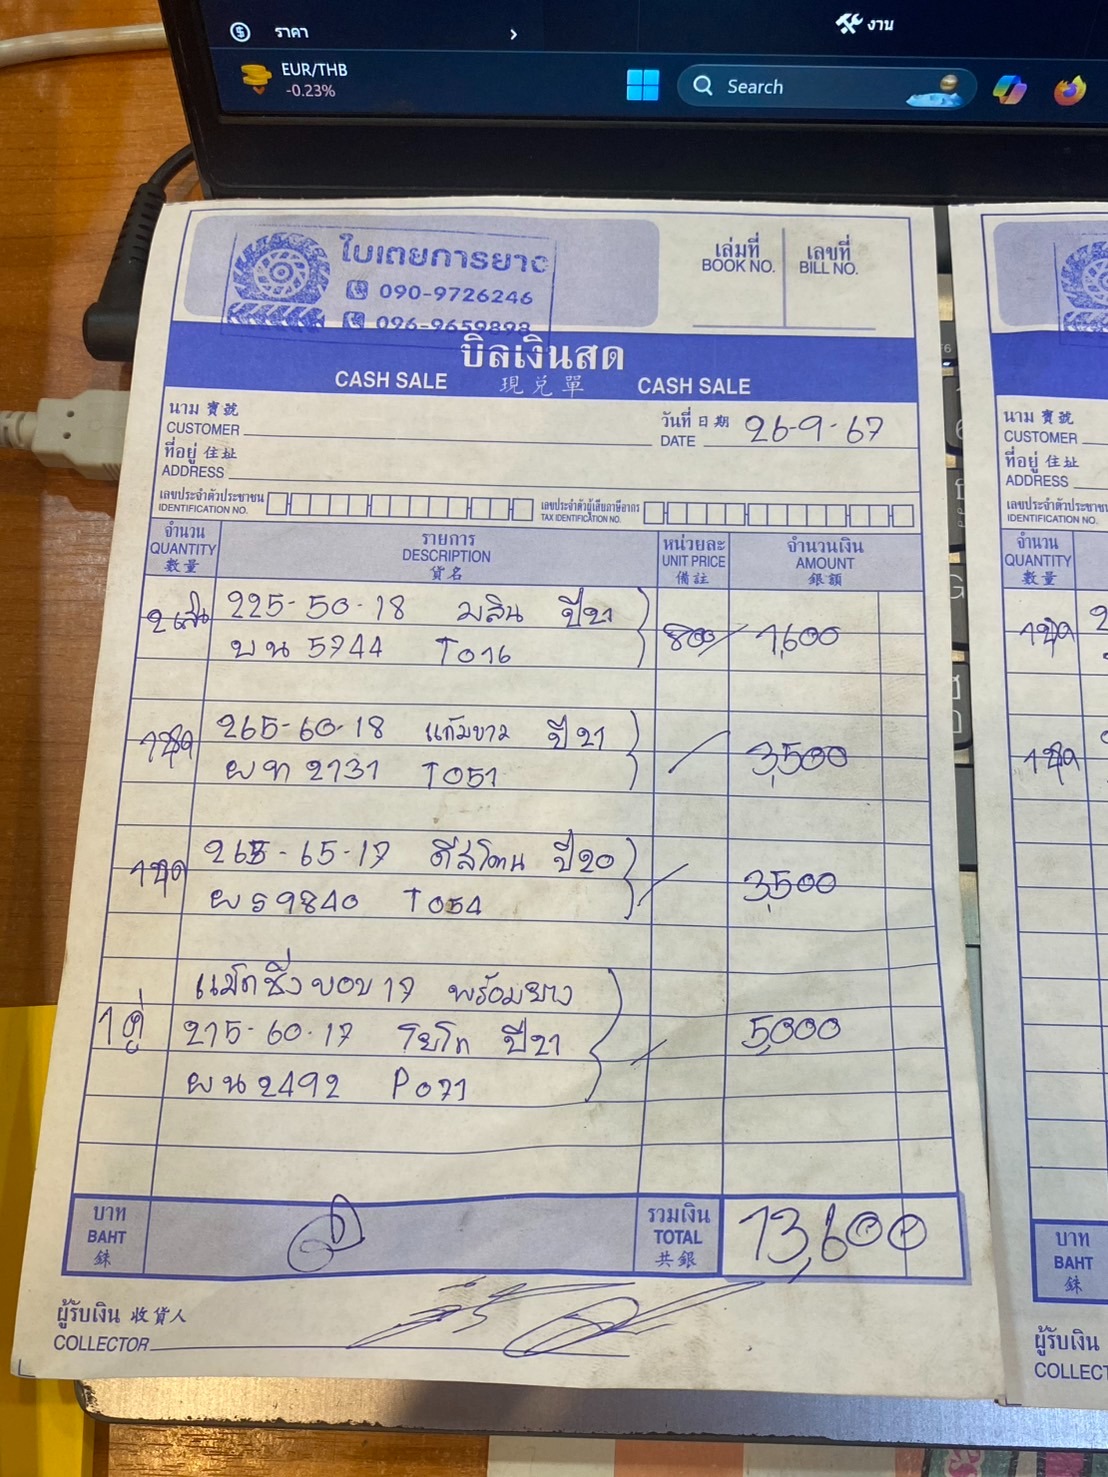 ราคา
งาน
EUR/THB
-0.23%
Search
ใบเตยการยาง
090-9726246
096-9659898
เล่มที่
BOOK NO.
เลขที่
BILL NO.
บิลเงินสด
CASH SALE 現兌單 CASH SALE
นาม 寶號
CUSTOMER
วันที่ 日期
DATE 26-9-67
ที่อยู่ 住址
ADDRESS
เลขประจำตัวประชาชน
IDENTIFICATION NO.
เลขประจำตัวผู้เสียภาษีอากร
TAX IDENTIFICATION NO.
จำนวน
QUANTITY
數量
รายการ
DESCRIPTION
貨名
หน่วยละ
UNIT PRICE
備註
จำนวนเงิน
AMOUNT
銀額
2เส้น 225-50-18 มลิน ปี21
บน 5744 T016 800/ 1,600
265-60-18 แก้มขาว ปี 21
1ชุด ผท 2131 T051 3,500
265-65-17 ดีสโตน ปี20
1ชุด ผร 9840 T054 3,500
แม็กซิ่งขอบ 17 พร้อมยาง
1คู่ 215-60-17 โยโก ปี21 5,000
ผน 2492 P071
บาท
BAHT
銖
รวมเงิน
TOTAL
共銀
13,600
ผู้รับเงิน 收貨人
COLLECTOR
นาม 寶號
CUSTOMER
ที่อยู่ 住址
ADDRESS
เลขประจำตัวประชาชน
IDENTIFICATION NO.
จำนวน
QUANTITY
數量
1ชุด
1ชุด
บาท
BAHT
銖
ผู้รับเงิน